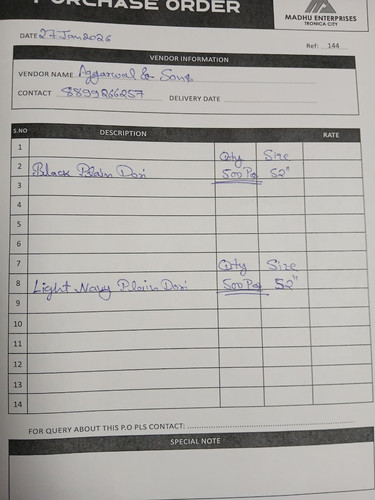 PURCHASE ORDER
MADHU ENTERPRISES
TRONICA CITY
DATE 27 Jan 2026
Ref: 144
VENDOR INFORMATION
VENDOR NAME Aggarwal & Sons
CONTACT 8899266257 DELIVERY DATE
S.NO DESCRIPTION RATE
1 Qty Size
2 Black Plain Dori 500 Pcs 52"
3
4
5
6
7 Qty Size
8 Light Navy Plain Dori 500 Pcs 52"
9
10
11
12
13
14
FOR QUERY ABOUT THIS P.O PLS CONTACT:
SPECIAL NOTE